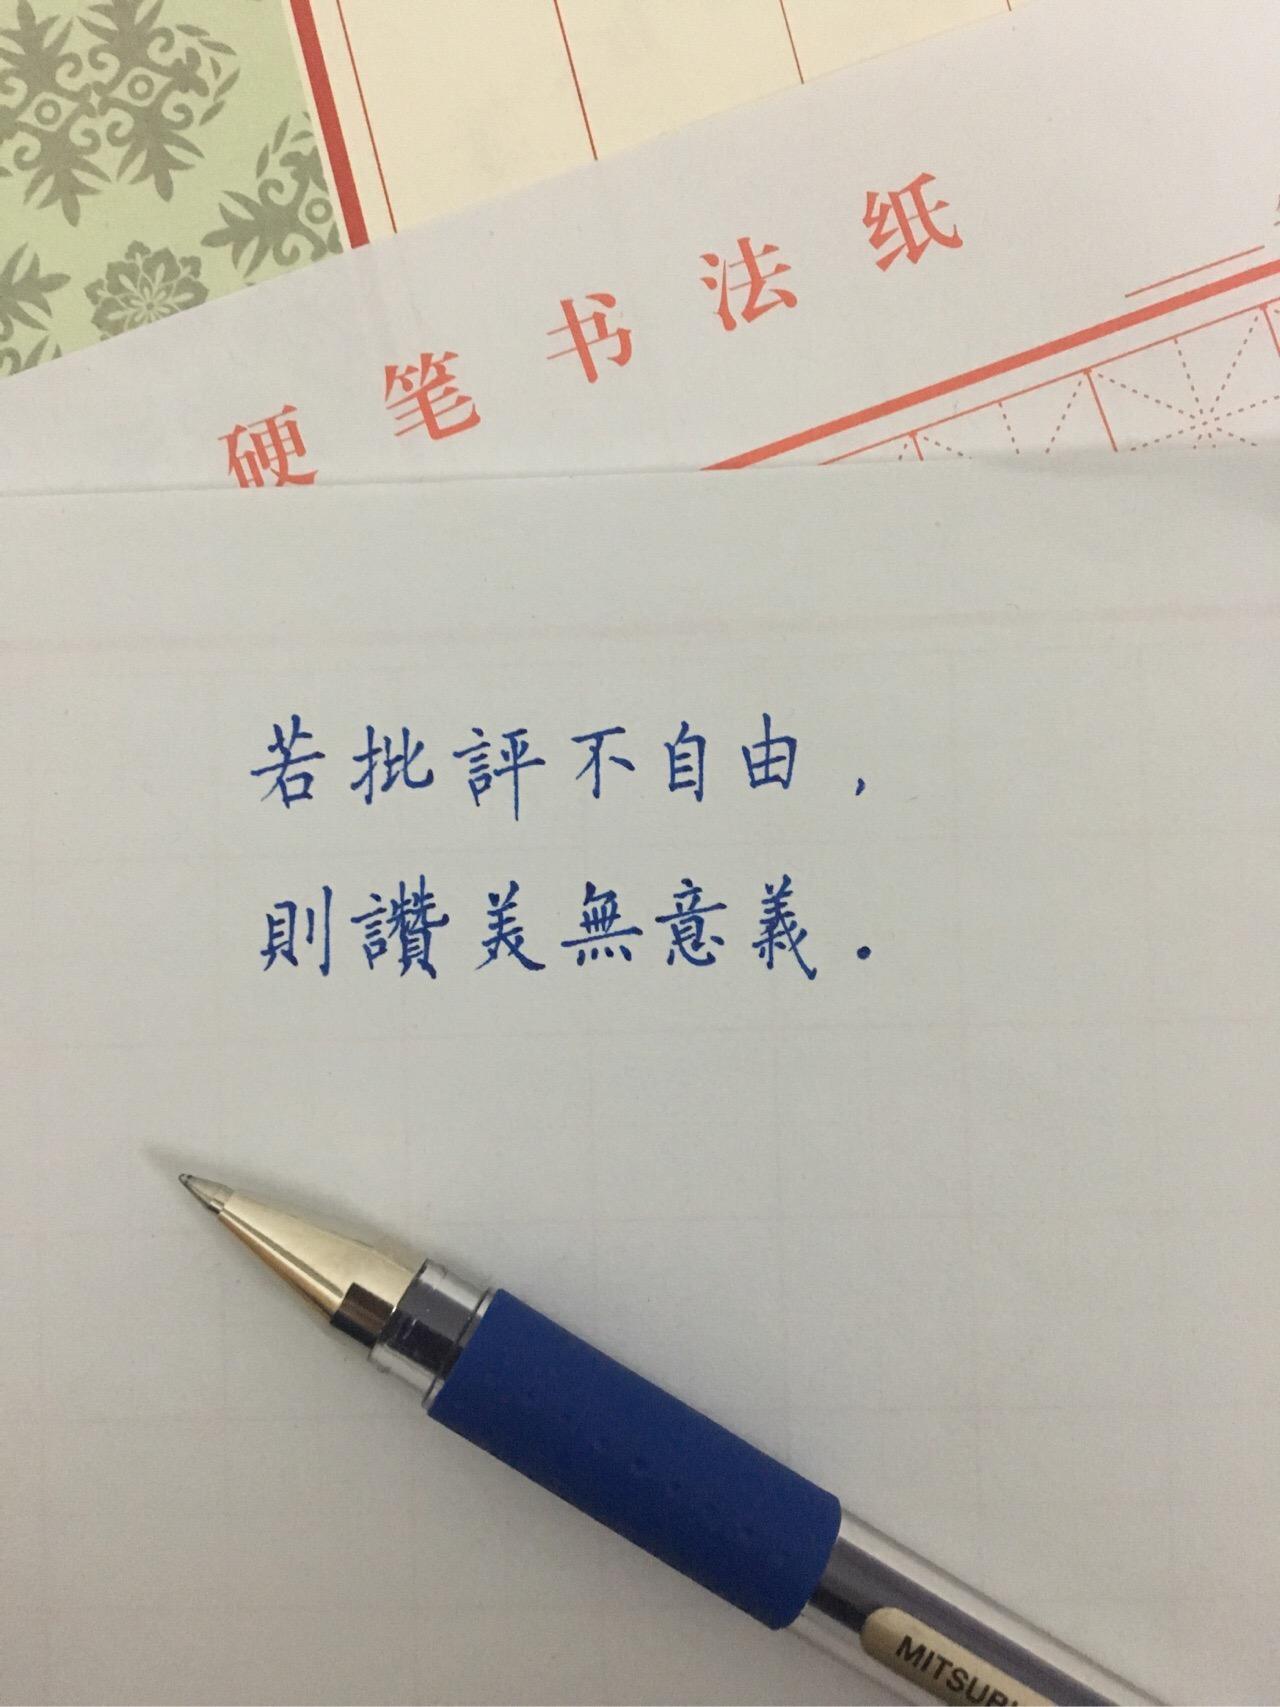 硬笔书法纸
若批評不自由，
則讚美無意義．
MITSUBI